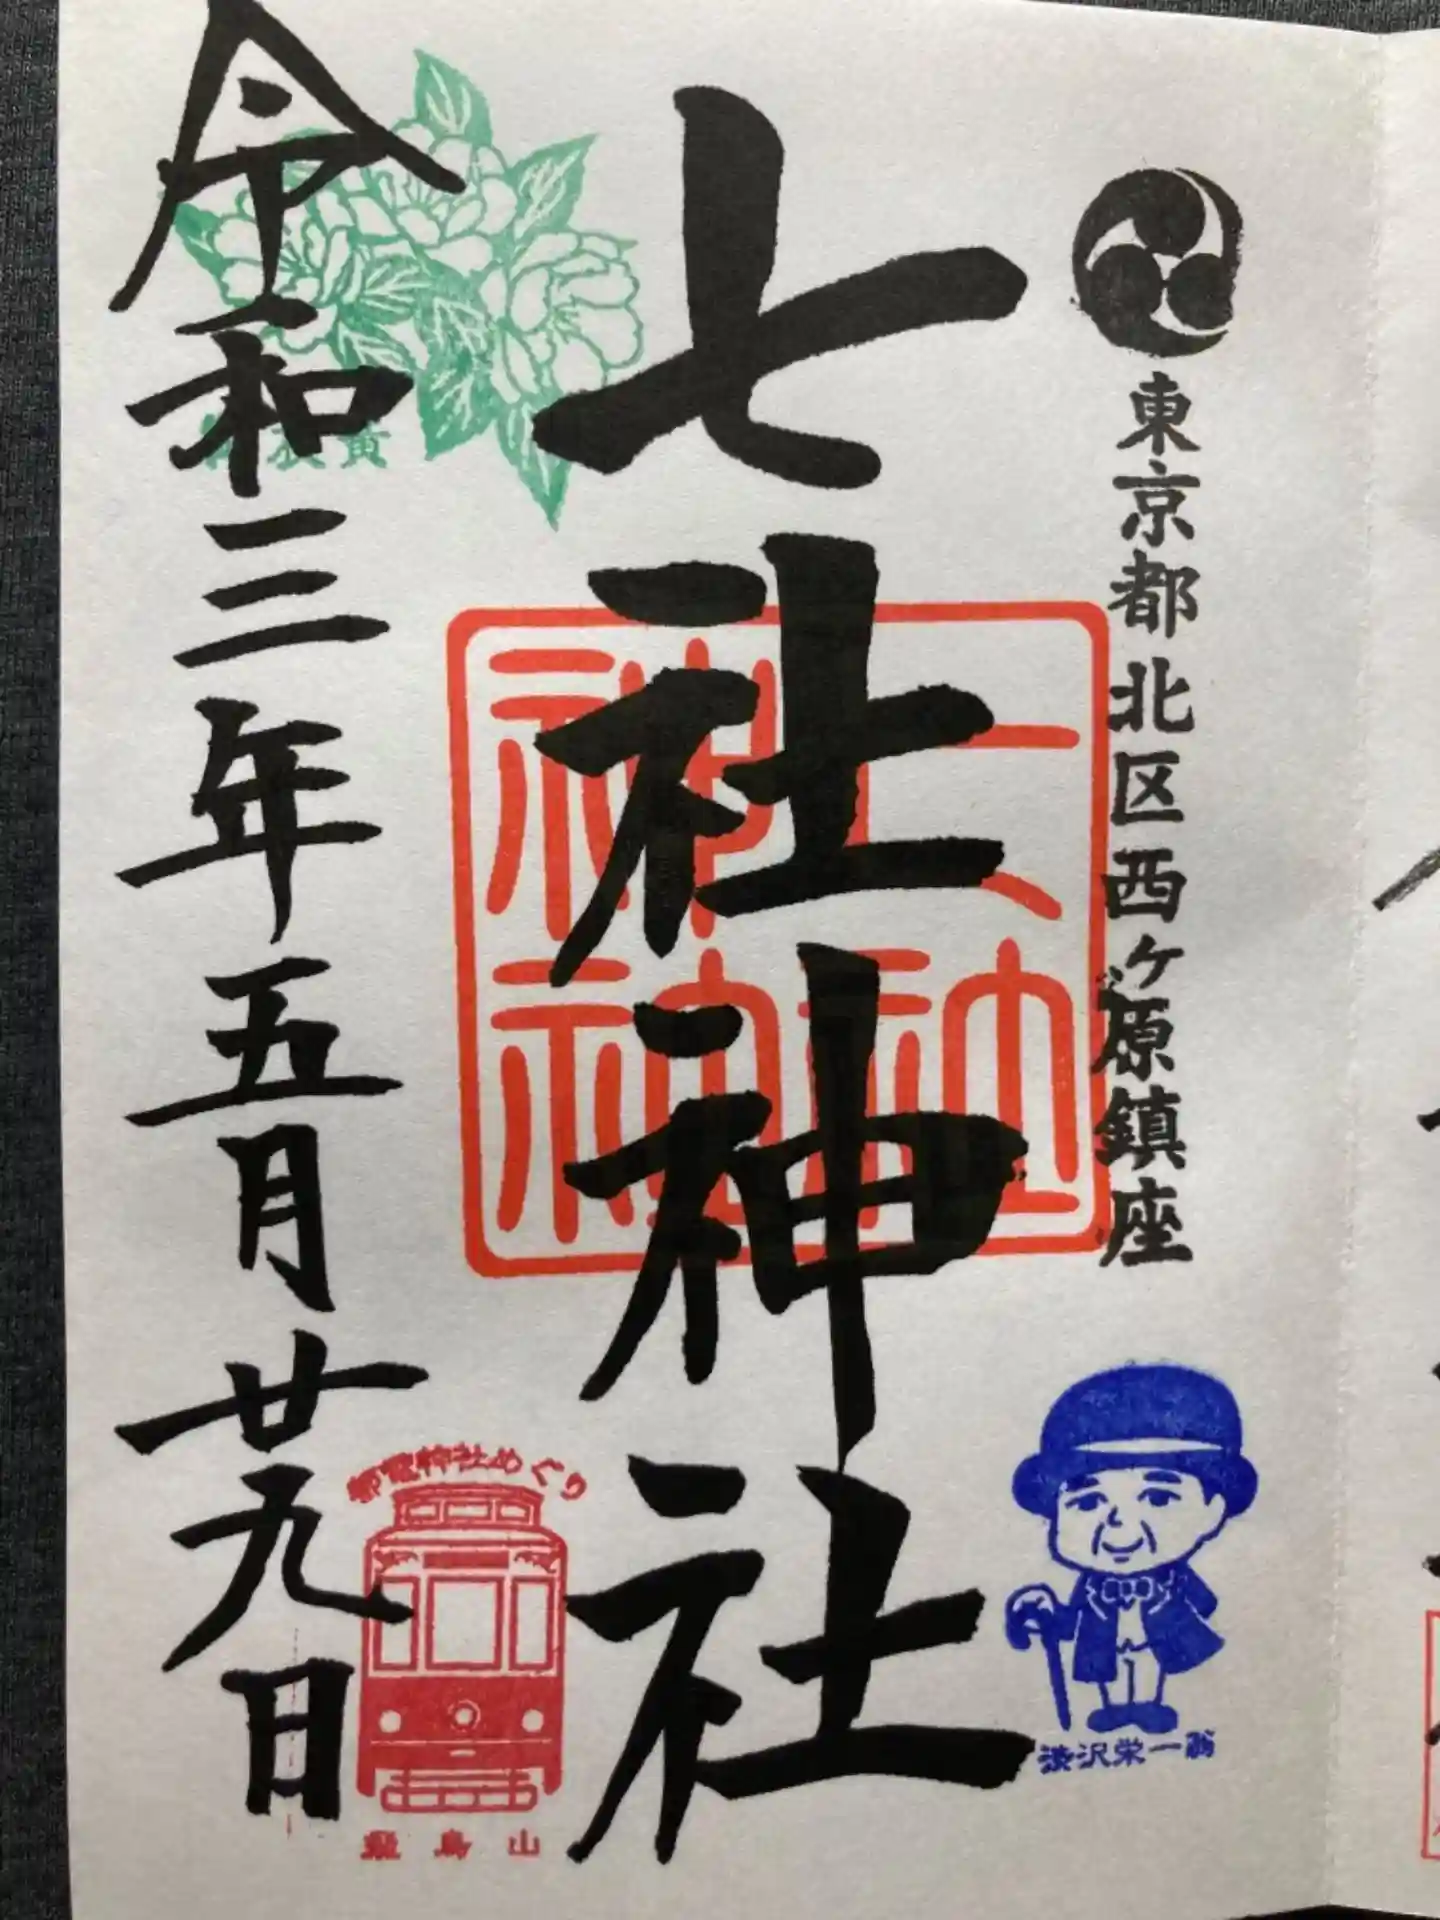 東京都北区西ヶ原鎮座
渋沢栄一翁
七社神社
七社
神社
令和三年五月廿九日
都電神社めぐり
飛鳥山